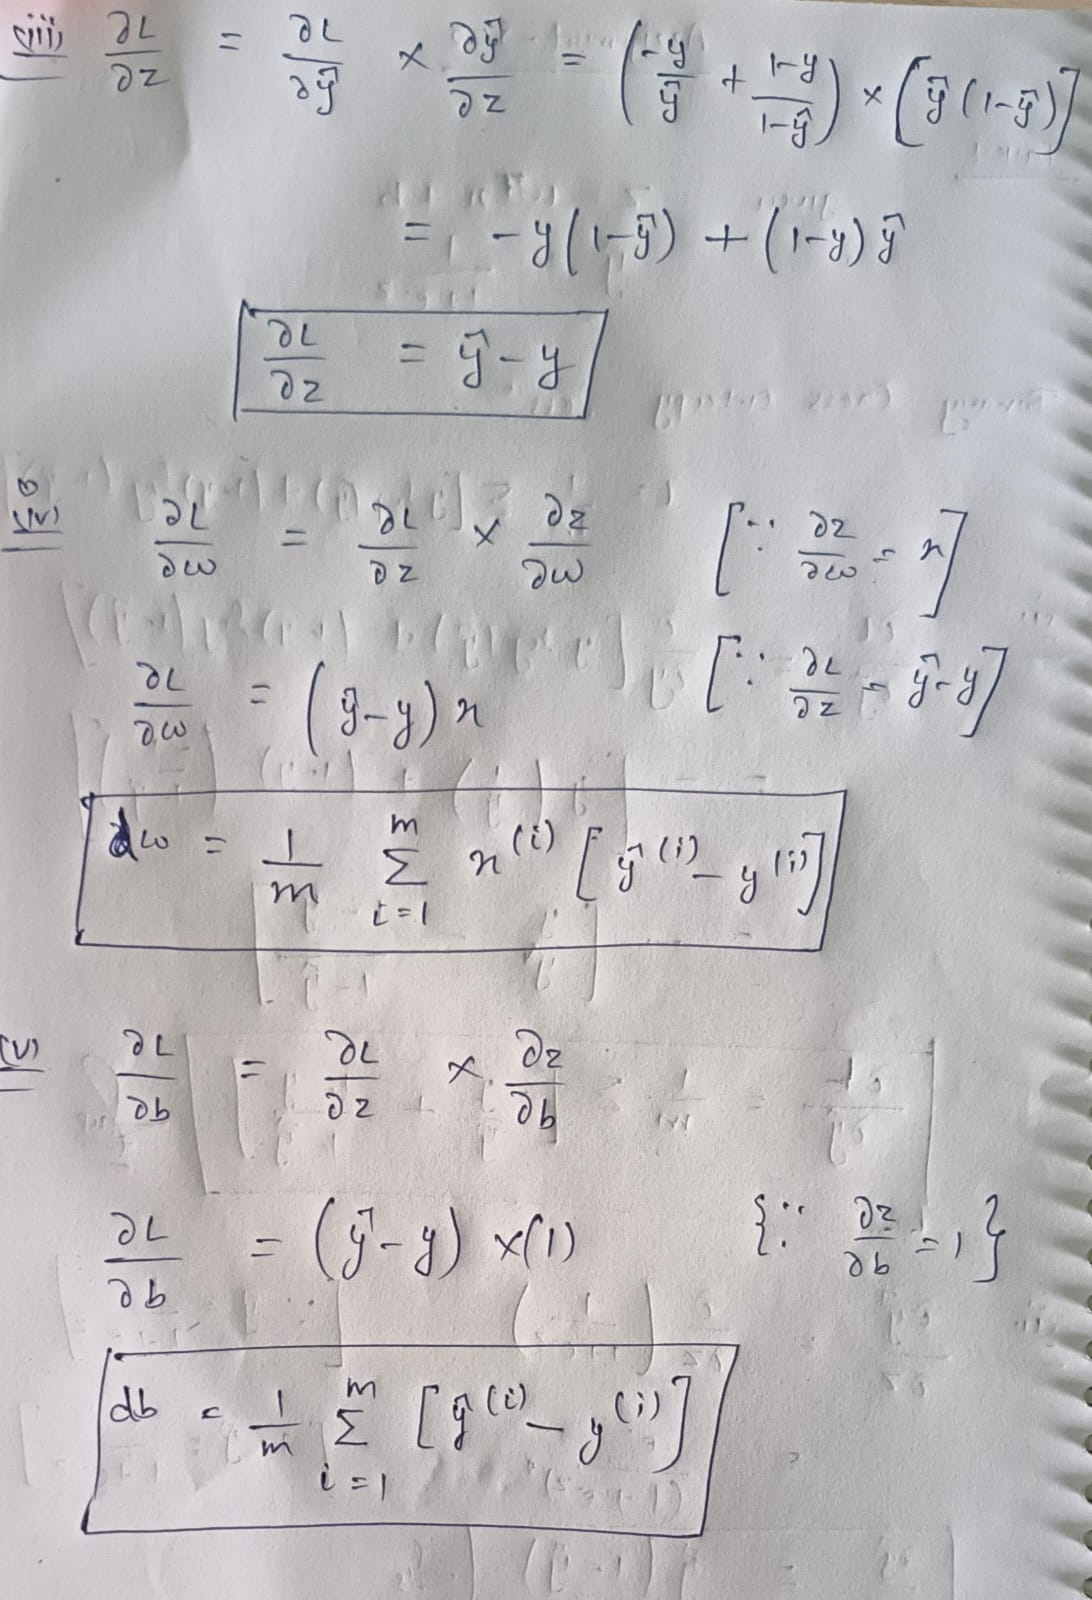 (iii) ∂L/∂z = ∂L/∂ŷ × ∂ŷ/∂z = (-y/ŷ + 1-y/1-ŷ) × [ŷ(1-ŷ)]
= -y(1-ŷ) + (1-y)ŷ
∂L/∂z = ŷ - y
(iv) ∂L/∂w = ∂L/∂z × ∂z/∂w [∵ ∂z/∂w = x]
∂L/∂w = (ŷ-y)x [∵ ∂L/∂z = ŷ-y]
dw = 1/m Σ_{i=1}^{m} x^(i) [ŷ^(i) - y^(i)]
(v) ∂L/∂b = ∂L/∂z × ∂z/∂b
∂L/∂b = (ŷ-y) ×(1) {∵ ∂z/∂b = 1}
db = 1/m Σ_{i=1}^{m} [ŷ^(i) - y^(i)]